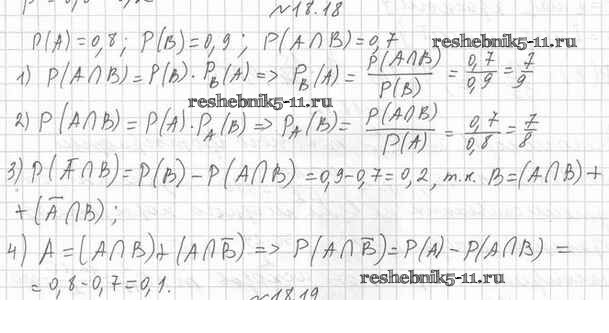 №18.18
P(A)=0,8; P(B)=0,9; P(A∩B)=0,7
reshebnik5-11.ru
1) P(A∩B)=P(B)·P_B(A) => P_B(A) = P(A∩B)/P(B) = 0,7/0,9 = 7/9
reshebnik5-11.ru
2) P(A∩B)=P(A)·P_A(B) => P_A(B) = P(A∩B)/P(A) = 0,7/0,8 = 7/8
3) P(A̅∩B)=P(B)-P(A∩B)=0,9-0,7=0,2, т.к. B=(A∩B)+
+(A̅∩B);
4) A=(A∩B)+(A∩B̅) => P(A∩B̅)=P(A)-P(A∩B) =
reshebnik5-11.ru
=0,8-0,7=0,1.
№18.19